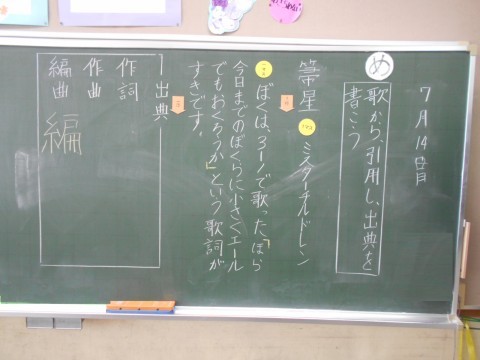 7月14日
め
歌から、引用し、出典を
書こう
箒星 ミスターチルドレン
ぼくは、3-1で歌った「ぼくら
今日までのぼくらに小さくエール
でもおくろうか」という歌詞が
すきです。
出典
作詞
作曲
編曲 編